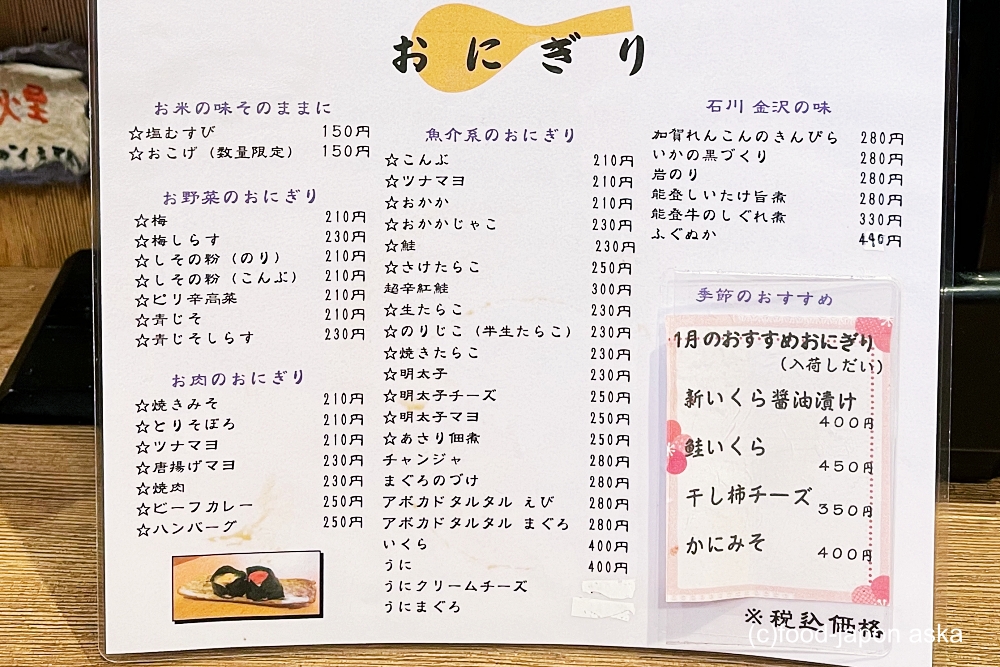 おにぎり
お米の味そのままに
☆塩むすび 150円
☆おこげ（数量限定） 150円
お野菜のおにぎり
☆梅 210円
☆梅しらす 230円
☆しその粉（のり） 210円
☆しその粉（こんぶ） 210円
☆ピリ辛高菜 210円
☆青じそ 210円
☆青じそしらす 230円
お肉のおにぎり
☆焼きみそ 210円
☆とりそぼろ 210円
☆ツナマヨ 210円
☆唐揚げマヨ 230円
☆焼肉 230円
☆ビーフカレー 250円
☆ハンバーグ 250円
魚介系のおにぎり
☆こんぶ 210円
☆ツナマヨ 210円
☆おかか 210円
☆おかかじゃこ 230円
☆鮭 230円
☆さけたらこ 250円
超辛紅鮭 300円
☆生たらこ 230円
☆のりじこ（半生たらこ） 230円
☆焼きたらこ 230円
☆明太子 230円
☆明太子チーズ 250円
☆明太子マヨ 250円
☆あさり佃煮 250円
チャンジャ 280円
まぐろのづけ 280円
アボカドタルタル えび 280円
アボカドタルタル まぐろ 280円
いくら 400円
うに 400円
うにクリームチーズ
うにまぐろ
石川 金沢の味
加賀れんこんのきんぴら 280円
いかの黒づくり 280円
岩のり 280円
能登しいたけ旨煮 280円
能登牛のしぐれ煮 330円
ふぐぬか 440円
季節のおすすめ
1月のおすすめおにぎり
（入荷しだい）
新いくら醤油漬け
400円
鮭いくら
450円
干し柿チーズ
350円
かにみそ
400円
※税込価格
(c)food-japon aska